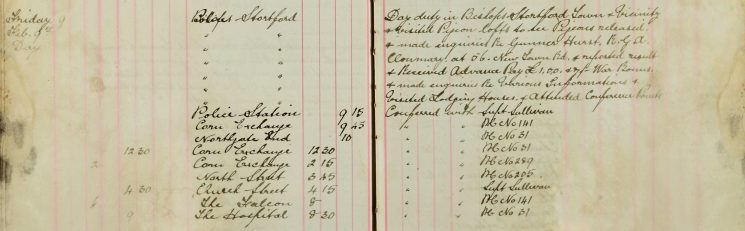 Friday 9 Bishops Stortford
Feb. 8th "
Day "
Police Station 9 15
Corn Exchange 9 45
Northgate End 10
12 30 Corn Exchange 12 30
2 Corn Exchange 2 15
North Street 3 45
4 30 Church Street 4 15
6 The Falcon 8
9 The Hospital 8 30
Day duty in Bishops Stortford Town & Vicinity
& visited Pigeon lofts to see Pigeons released.
& made enquiries Re Gunner Hurst, R.G.A.
at 56. New Town Rd. & reported result
& Received Advance Pay £1.0.0. & War Bonus.
& made enquiries Re Various Informations &
Visited Lodging Houses, & Attended Conference Points
Conferred with Supt Sullivan
" " PC No 141
PC No 31
" " PC No 31
" " PC No 289
" " PC No 205
" " Supt Sullivan
" " PC No 141
" " PC No 31